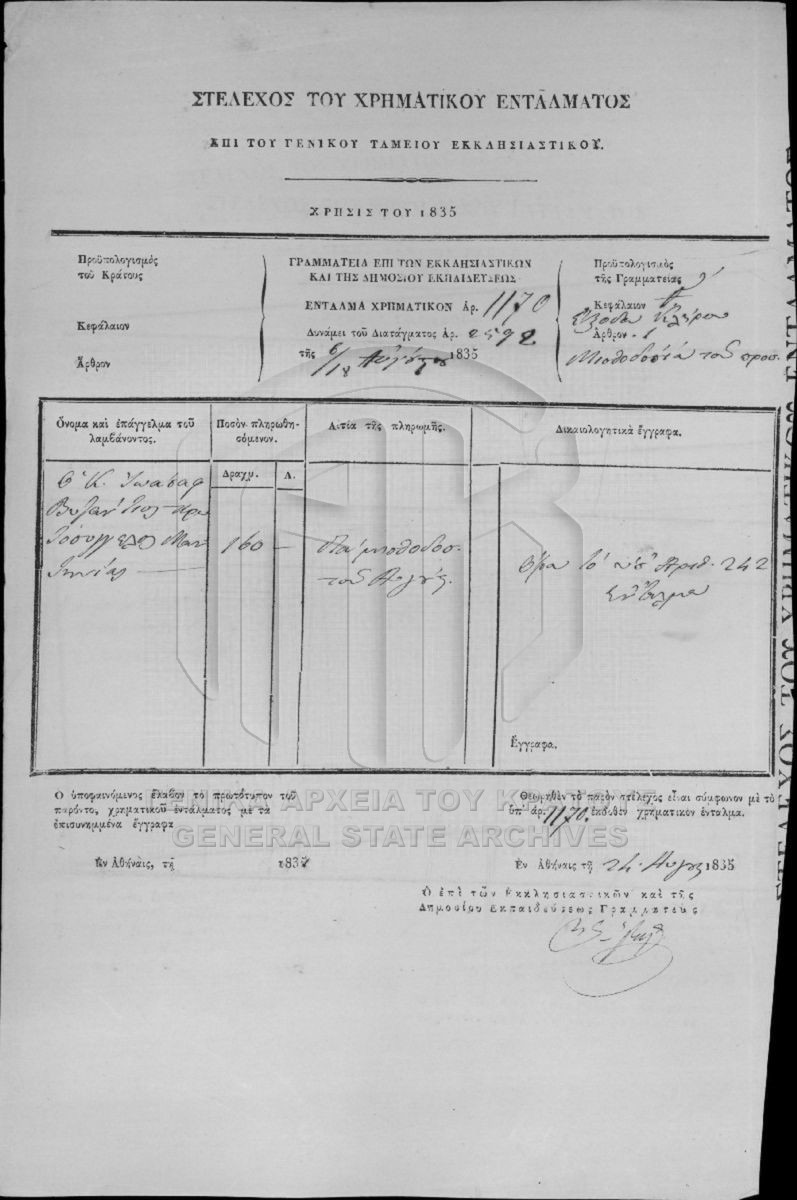 ΣΤΕΛΕΧΟΣ ΤΟΥ ΧΡΗΜΑΤΙΚΟΥ ΕΝΤΑΛΜΑΤΟΣ
ΕΠΙ ΤΟΥ ΓΕΝΙΚΟΥ ΤΑΜΕΙΟΥ ΕΚΚΛΗΣΙΑΣΤΙΚΟΥ.
ΧΡΗΣΙΣ ΤΟΥ 1835
Προϋπολογισμὸς
τοῦ Κράτους
Κεφάλαιον
Ἄρθρον
ΓΡΑΜΜΑΤΕΙΑ ΕΠΙ ΤΩΝ ΕΚΚΛΗΣΙΑΣΤΙΚΩΝ
ΚΑΙ ΤΗΣ ΔΗΜΟΣΙΟΥ ΕΚΠΑΙΔΕΥΣΕΩΣ
ΕΝΤΑΛΜΑ ΧΡΗΜΑΤΙΚΟΝ Ἀρ. 1170
Δυνάμει τοῦ Διατάγματος Ἀρ. 2592
τῆς 6/18 Αὐγούστου 1835
Προϋπολογισμὸς
τῆς Γραμματείας
Κεφάλαιον
Ἔξοδα Κλήρου
Ἄρθρον 1
Μισθοδοσία τοῦ προσ.
Ὄνομα καὶ ἐπάγγελμα τοῦ
λαμβάνοντος.
Ποσὸν πληρωθη-
σόμενον.
Αἰτία τῆς πληρωμῆς.
Δικαιολογητικὰ ἔγγραφα.
Δραχμ. Λ.
Ὁ Κ. Ἰωάσαφ
Βυζάντιος
Μαν
τινείας
160 —
μισθοδοσ.
τοῦ Αὐγούς.
ὑπ' Ἀριθ. 242
Ἔνταλμα
Ἔγγραφα.
Ο ὑποφαινόμενος ἔλαβον τὸ πρωτότυπον τοῦ
παρόντος χρηματικοῦ ἐντάλματος μὲ τὰ
ἐπισυνημμένα ἔγγραφα
Ἐν Ἀθήναις, τῇ 183
Θεωρηθὲν τὸ παρὸν στέλεχος εἶναι σύμφωνον μὲ τὸ
ὑπ' ἀρ. 1170. ἐκδοθὲν χρηματικὸν ἔνταλμα.
Ἐν Ἀθήναις τῇ 24 Αὐγούς 1835
Ο ἐπὶ τῶν Ἐκκλησιαστικῶν καὶ τῆς
Δημοσίου Ἐκπαιδεύσεως Γραμματεὺς
ΓΕΝΙΚΑ ΑΡΧΕΙΑ ΤΟΥ ΚΡΑΤΟΥΣ
GENERAL STATE ARCHIVES
ΣΤΕΛΕΧΟΣ ΤΟΥ ΧΡΗΜΑΤΙΚΟΥ ΕΝΤΑΛΜΑΤΟΣ